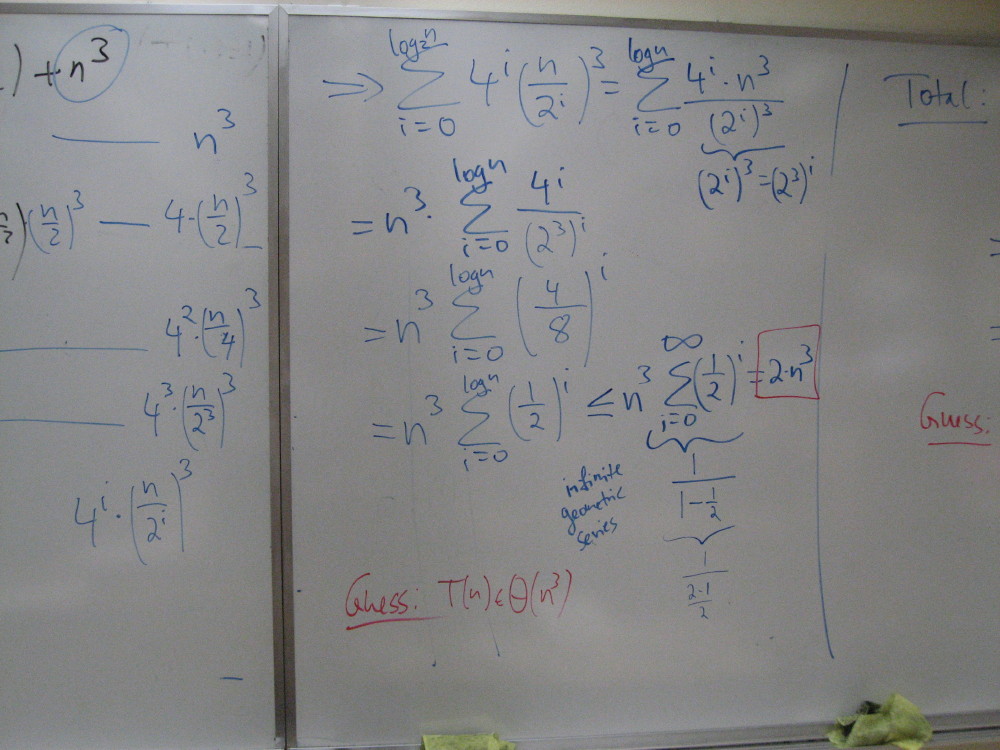 ) + n³
n³
(n/2)³ — 4·(n/2)³
4²·(n/4)³
4³·(n/2³)³
4ⁱ·(n/2ⁱ)³
⇒ ∑_{i=0}^{log₂n} 4ⁱ(n/2ⁱ)³ = ∑_{i=0}^{logn} 4ⁱ·n³/(2ⁱ)³
(2ⁱ)³=(2³)ⁱ
= n³· ∑_{i=0}^{logn} 4ⁱ/(2³)ⁱ
= n³ ∑_{i=0}^{logn} (4/8)ⁱ
= n³ ∑_{i=0}^{logn} (1/2)ⁱ ≤ n³ ∑_{i=0}^{∞} (1/2)ⁱ = 2·n³
infinite
geometric
series
1/(1-1/2)
1/((2-1)/2)
Guess: T(n) ∈ Θ(n³)
Total:
Guess: